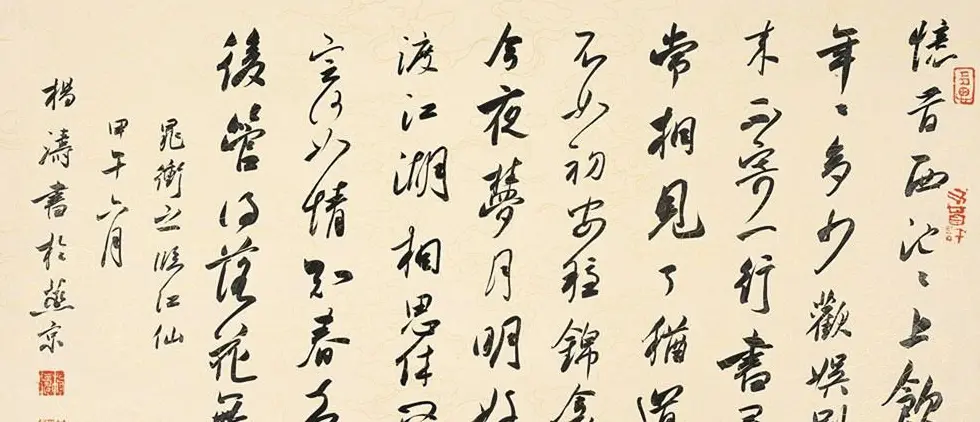 憶昔西池〻上飲
年〻多少歡娛別
来不寄一行書尋
常相見了猶道
不如初安穩錦衾
今夜夢月明好
渡江湖相思休問
定何如情知春去
後管得落花無
晁衝之臨江仙
甲午六月
楊濤書於燕京